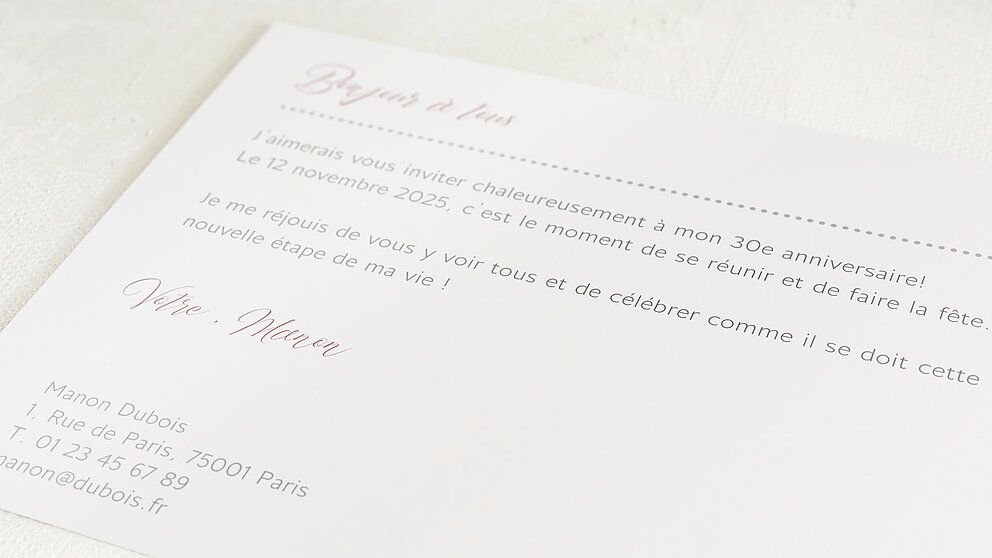 Bonjour à tous
J'aimerais vous inviter chaleureusement à mon 30e anniversaire!
Le 12 novembre 2025, c'est le moment de se réunir et de faire la fête.
Je me réjouis de vous y voir tous et de célébrer comme il se doit cette
nouvelle étape de ma vie !
Votre, Manon
Manon Dubois
1, Rue de Paris, 75001 Paris
T. 01 23 45 67 89
manon@dubois.fr